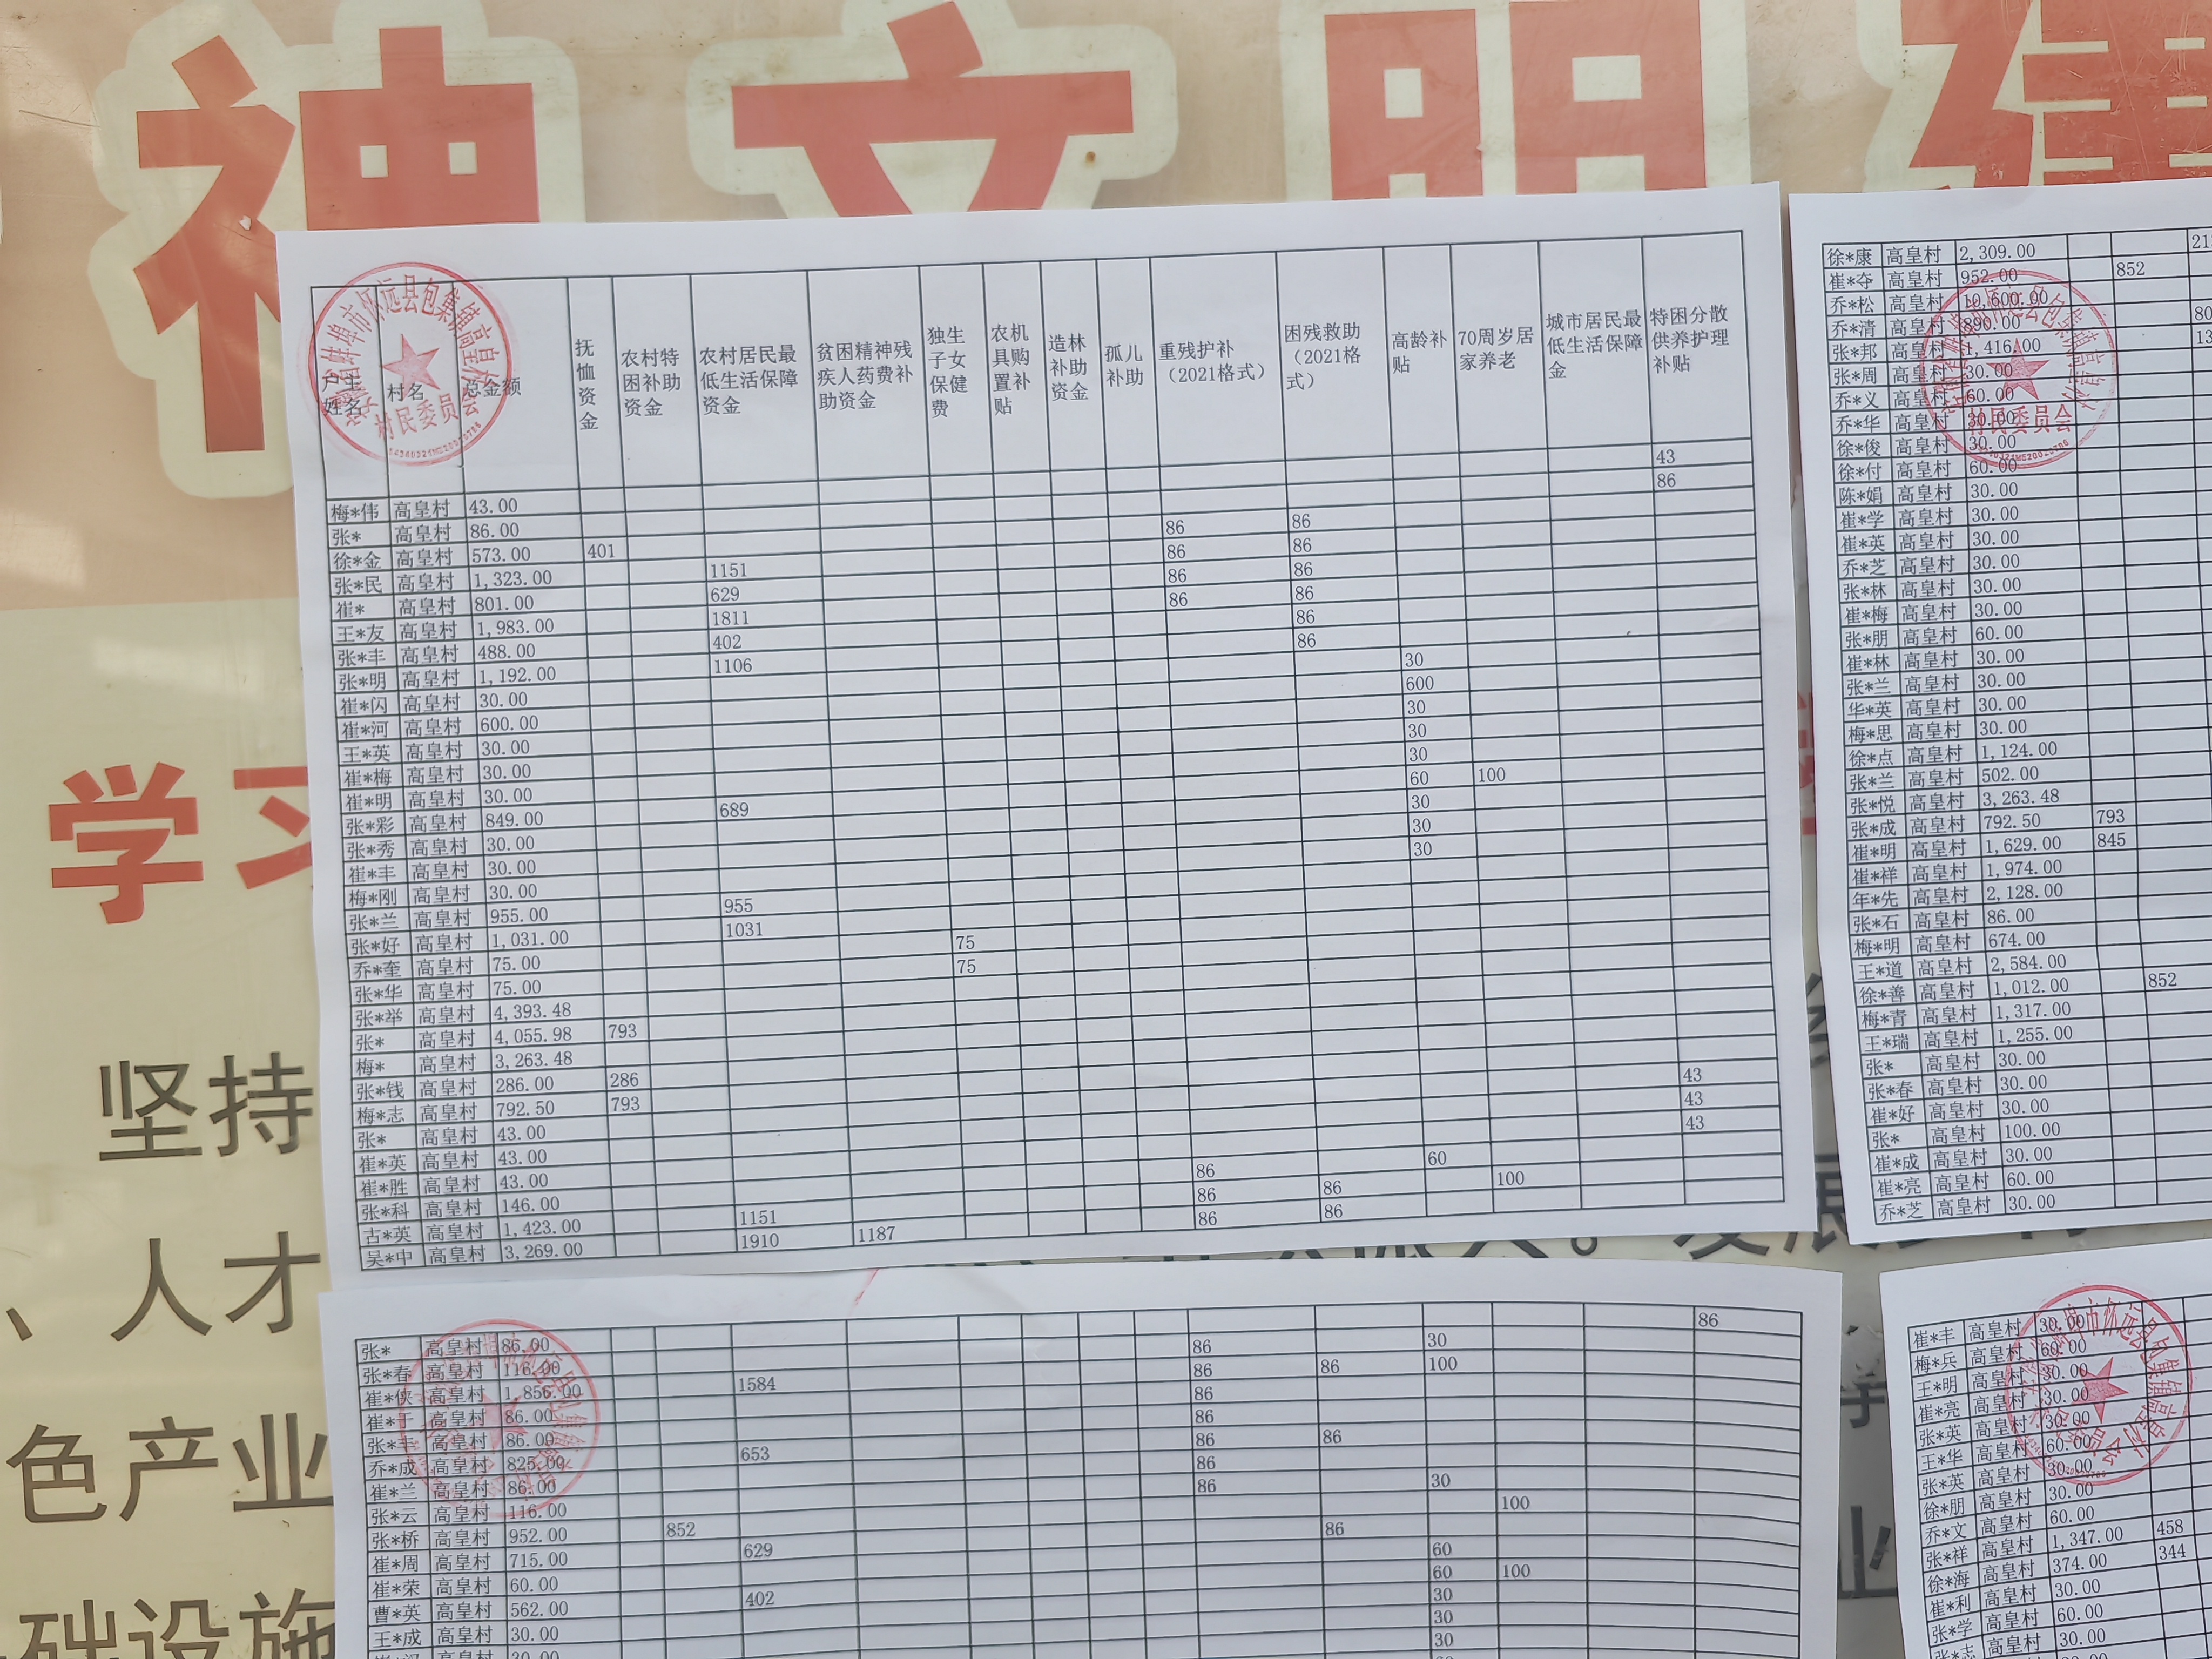 神文明建
学习
坚持
、人才
色产业
础设施
户主姓名 村名 总金额 抚恤资金 农村特困补助资金 农村居民最低生活保障资金 贫困精神残疾人药费补助资金 独生子女保健费 农机具购置补贴 造林补助资金 孤儿补助 重残护补（2021格式） 困残救助（2021格式） 高龄补贴 70周岁居家养老 城市居民最低生活保障金 特困分散供养护理补贴
梅*伟 高皇村 43.00 43
张* 高皇村 86.00 86
徐*金 高皇村 573.00 401 86 86
张*民 高皇村 1,323.00 1151 86 86
崔* 高皇村 801.00 629 86 86
王*友 高皇村 1,983.00 1811 86 86
张*丰 高皇村 488.00 402 86
张*明 高皇村 1,192.00 1106 86
崔*闪 高皇村 30.00 30
崔*河 高皇村 600.00 600
王*英 高皇村 30.00 30
崔*梅 高皇村 30.00 30
崔*明 高皇村 30.00 30
张*彩 高皇村 849.00 689 60 100
张*秀 高皇村 30.00 30
崔*丰 高皇村 30.00 30
梅*刚 高皇村 30.00 30
张*兰 高皇村 955.00 955
张*好 高皇村 1,031.00 1031
乔*奎 高皇村 75.00 75
张*华 高皇村 75.00 75
张*举 高皇村 4,393.48
张* 高皇村 4,055.98 793
梅* 高皇村 3,263.48
张*钱 高皇村 286.00 286
梅*志 高皇村 792.50 793
张* 高皇村 43.00 43
崔*英 高皇村 43.00 43
崔*胜 高皇村 43.00 43
张*科 高皇村 146.00 86 60
古*英 高皇村 1,423.00 1151 86 86 100
吴*中 高皇村 3,269.00 1910 1187 86 86
村民委员会
徐*康 高皇村 2,309.00 21
崔*夺 高皇村 952.00 852
乔*松 高皇村 10,600.00
乔*清 高皇村 890.00 80
张*邦 高皇村 1,416.00 13
张*周 高皇村 30.00
乔*义 高皇村 60.00
乔*华 高皇村 30.00
徐*俊 高皇村 30.00
徐*付 高皇村 60.00
陈*娟 高皇村 30.00
崔*学 高皇村 30.00
崔*英 高皇村 30.00
乔*芝 高皇村 30.00
张*林 高皇村 30.00
崔*梅 高皇村 30.00
张*朋 高皇村 60.00
崔*林 高皇村 30.00
张*兰 高皇村 30.00
华*英 高皇村 30.00
梅*思 高皇村 30.00
徐*点 高皇村 1,124.00
张*兰 高皇村 502.00
张*悦 高皇村 3,263.48
张*成 高皇村 792.50 793
崔*明 高皇村 1,629.00 845
崔*祥 高皇村 1,974.00
年*先 高皇村 2,128.00
张*石 高皇村 86.00
梅*明 高皇村 674.00
王*道 高皇村 2,584.00
徐*善 高皇村 1,012.00 852
梅*青 高皇村 1,317.00
王*瑞 高皇村 1,255.00
张* 高皇村 30.00
张*春 高皇村 30.00
崔*好 高皇村 30.00
张* 高皇村 100.00
崔*成 高皇村 30.00
崔*亮 高皇村 60.00
乔*芝 高皇村 30.00
村民委员会
张* 高皇村 86.00 86
张*春 高皇村 116.00 86 30
崔*侠 高皇村 1,856.00 1584 86 86 100
崔*于 高皇村 86.00 86
张*丰 高皇村 86.00 86
乔*成 高皇村 825.00 653 86 86
崔*兰 高皇村 86.00 86
张*云 高皇村 116.00 86 30
张*桥 高皇村 952.00 852 100
崔*周 高皇村 715.00 629 86
崔*荣 高皇村 60.00 60
曹*英 高皇村 562.00 402 60 100
王*成 高皇村 30.00 30
高皇村 30.00 30
30
崔*丰 高皇村 30.00
梅*兵 高皇村 60.00
王*明 高皇村 30.00
崔*亮 高皇村 30.00
张*英 高皇村 30.00
王*华 高皇村 60.00
张*英 高皇村 30.00
徐*朋 高皇村 30.00
乔*文 高皇村 60.00
张*祥 高皇村 1,347.00 458
徐*海 高皇村 374.00 344
崔*利 高皇村 30.00
张*学 高皇村 60.00
张*志 高皇村 30.00